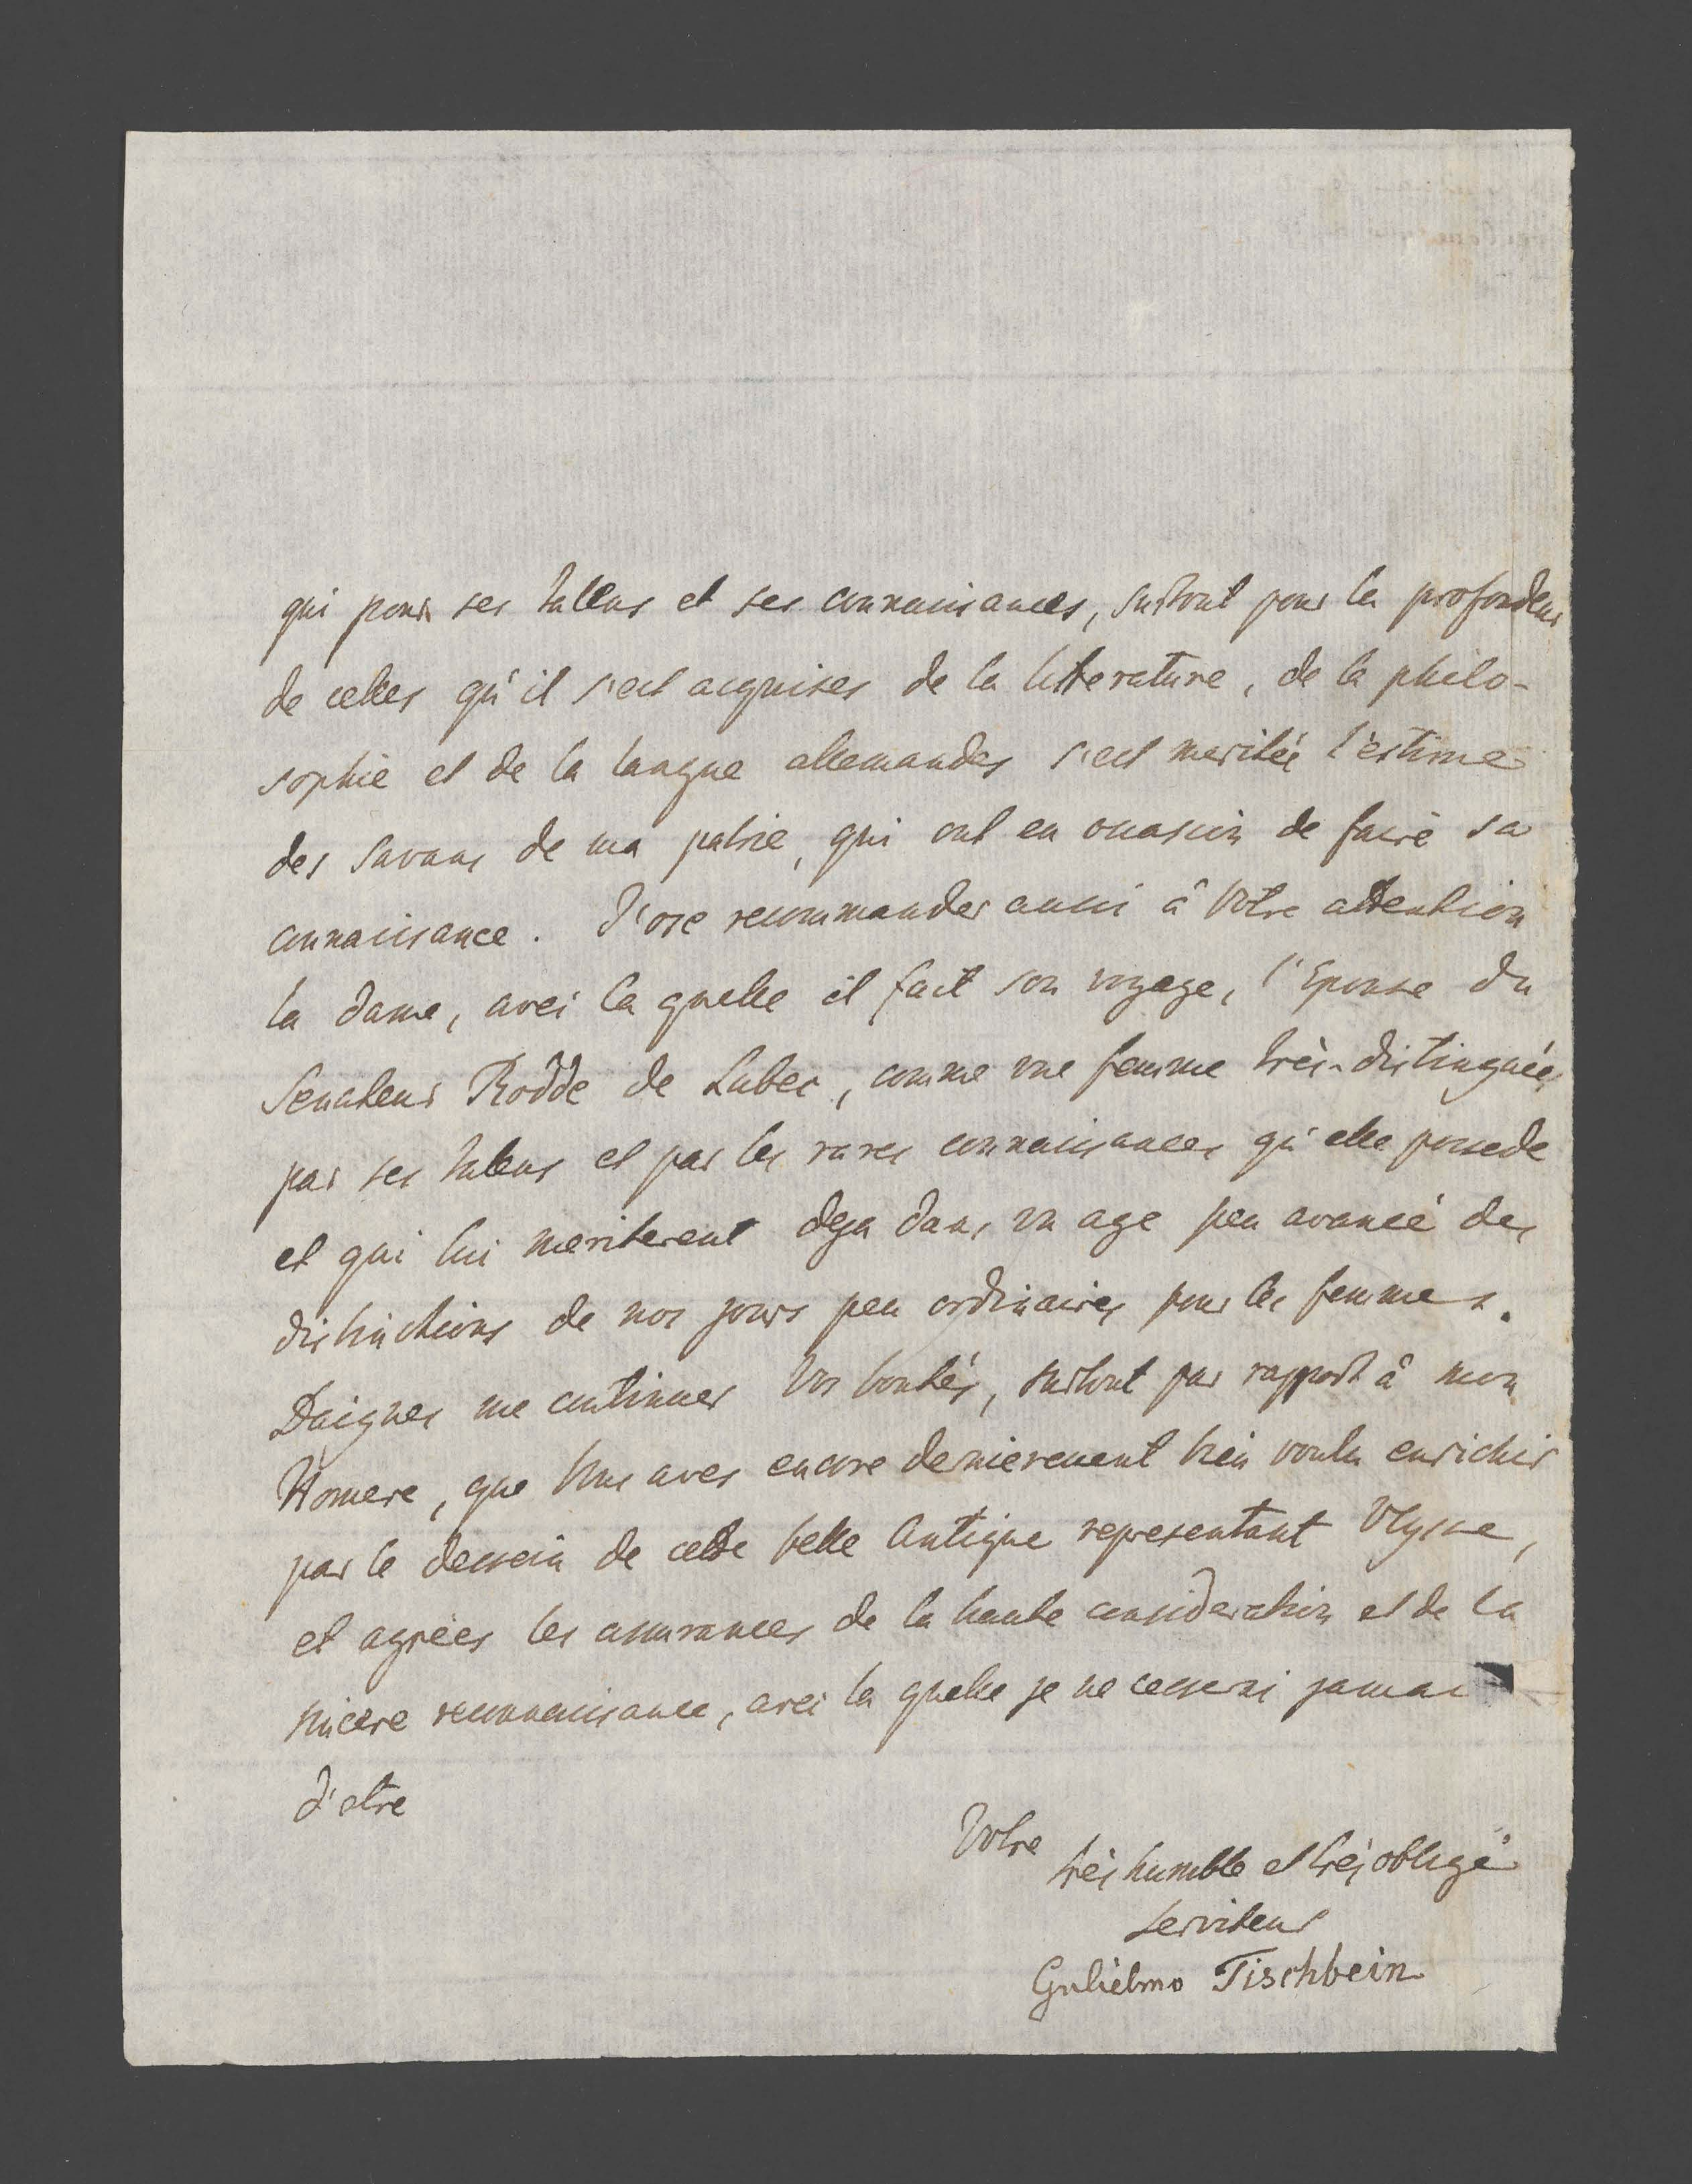 qui pour ses talens et ses connaissances, surtout pour la profondeur
de celles qu'il s'est acquises de la litterature, de la philo-
sophie et de la langue allemandes s'est meritée l'estime
des savans de ma patrie, qui ont eu occasion de faire sa
connaissance. J'ose recommander aussi â Votre attention
la dame, avec la quelle il fait son voyage, l'Epouse du
Senateur Rodde de Lubec, comme une femme très-distinguée
par ses talens et par les rares connaissances qu'elle possede
et qui lui meriterent deja dans un age peu avancé des
distinctions de nos jours peu ordinaires pour les femmes.
Daignes me continuer Vos bontés, surtout par rapport â mon
Homere, que Vous aves encore dernierement bien voulu enrichir
par le dessein de cette belle Antique representant Ulysse,
et agrées les assurances de la haute consideration et de la
sincere reconnaissance, avec la quelle je ne cesserai jamais
d'etre
Votre
très humble et très obligé
serviteur
Gulielmo Tischbein